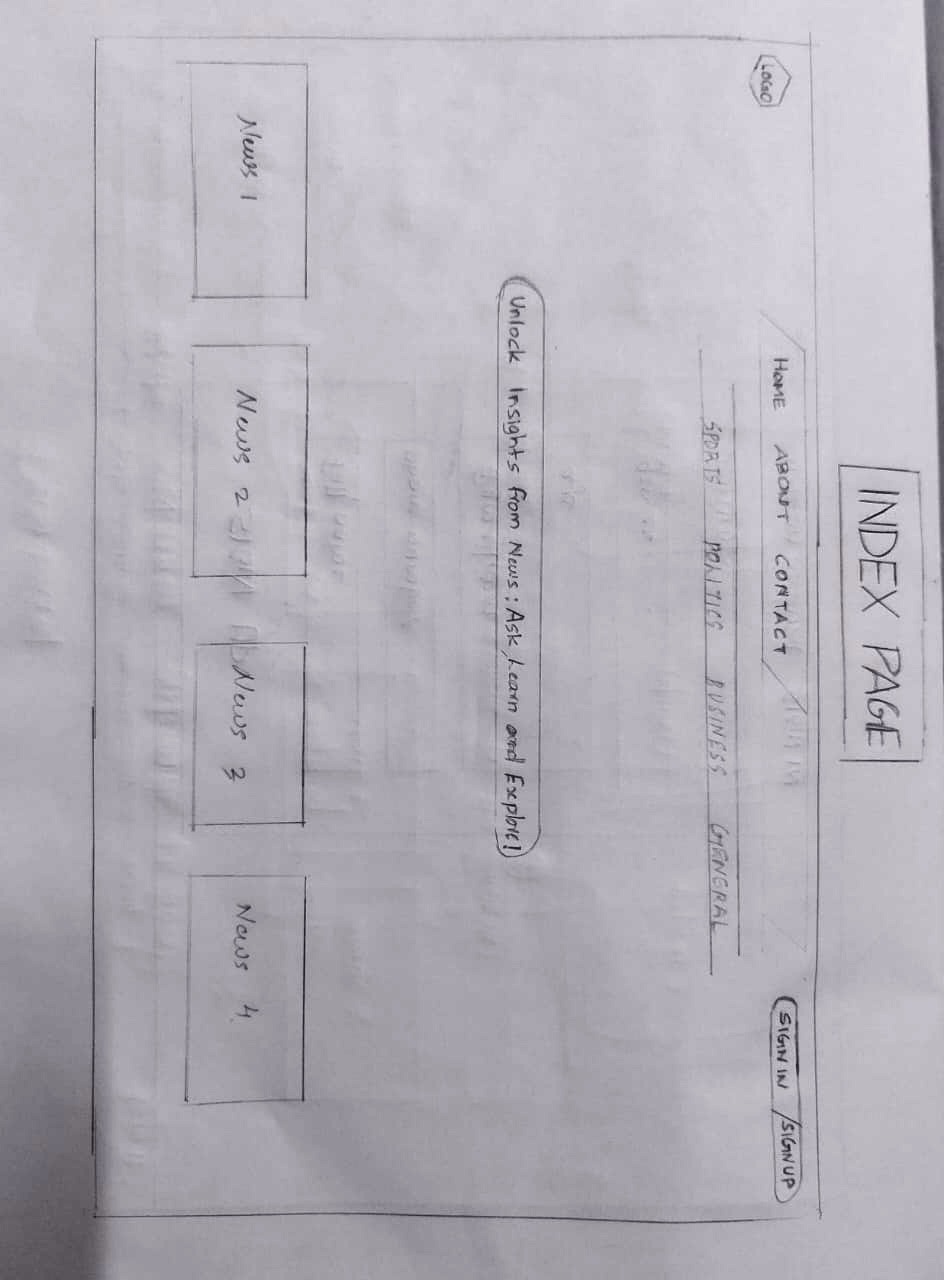 INDEX PAGE
LOGO
HOME ABOUT CONTACT
SIGN IN /SIGN UP
SPORTS POLITICS BUSINESS GENERAL
Unlock Insights from News: Ask, Learn and Explore!
News 1
News 2
News 3
News 4